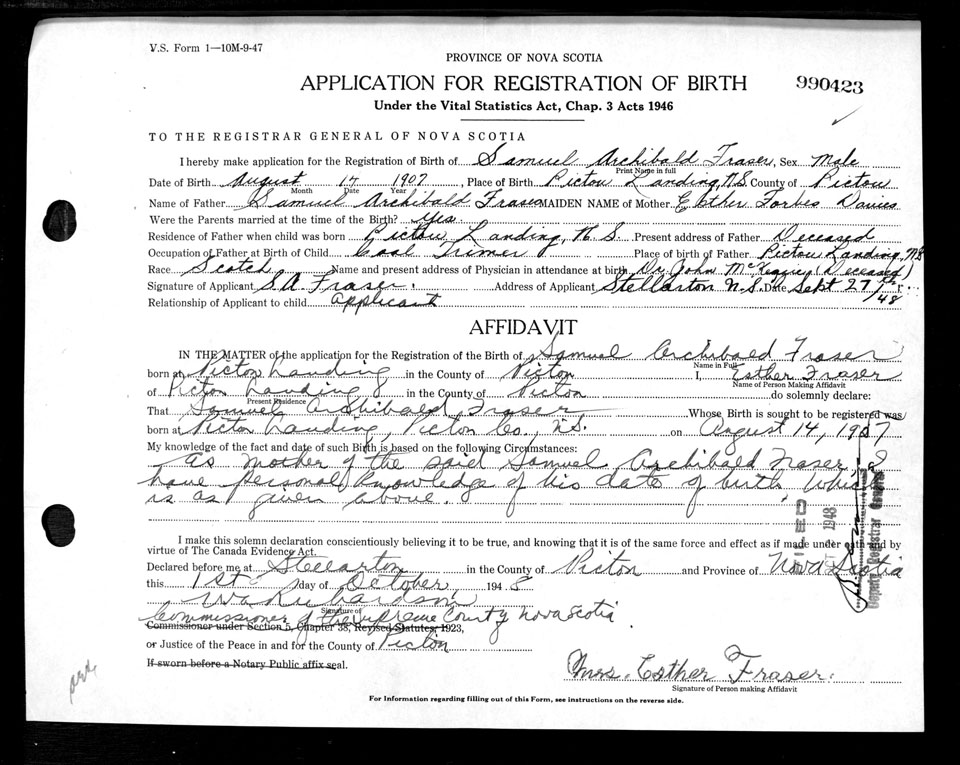 V.S. Form 1—10M-9-47
PROVINCE OF NOVA SCOTIA
APPLICATION FOR REGISTRATION OF BIRTH
990423
Under the Vital Statistics Act, Chap. 3 Acts 1946
TO THE REGISTRAR GENERAL OF NOVA SCOTIA
I hereby make application for the Registration of Birth of Samuel Archibald Fraser, Sex Male
Print Name in full
Date of Birth August 17 1907, Place of Birth Pictou Landing, N.S. County of Pictou
Month Date Year
Name of Father Samuel Archibald Fraser MAIDEN NAME of Mother Esther Forbes Davies
Were the Parents married at the time of the Birth? Yes
Residence of Father when child was born Pictou Landing, N.S. Present address of Father Deceased
Occupation of Father at Birth of Child Coal Trimer Place of birth of Father Pictou Landing, NS
Race Scotch Name and present address of Physician in attendance at birth Dr. John (Deceased)
Signature of Applicant S.A. Fraser. Address of Applicant Stellarton N.S. Date Sept 27 /48
Relationship of Applicant to child applicant
AFFIDAVIT
IN THE MATTER of the application for the Registration of the Birth of Samuel Archibald Fraser
Name in Full
born at Pictou Landing in the County of Pictou I, Esther Fraser
Name of Person Making Affidavit
of Pictou Landing in the County of Pictou do solemnly declare:
Present Residence
That Samuel Archibald Fraser Whose Birth is sought to be registered was
born at Pictou Landing, Pictou Co., N.S. on August 14, 1907
My knowledge of the fact and date of such Birth is based on the following Circumstances:
As mother of the said Samuel Archibald Fraser, I
have personal knowledge of his date of birth which
is as given above.
I make this solemn declaration conscientiously believing it to be true, and knowing that it is of the same force and effect as if made under oath and by
virtue of The Canada Evidence Act.
Declared before me at Stellarton in the County of Pictou and Province of Nova Scotia
this 1st day of October, 1948
W A Richardson
Signature of
Commissioner of the Supreme County Nova Scotia
Commissioner under Section 5, Chapter 38, Revised Statutes, 1923,
or Justice of the Peace in and for the County of Pictou
If sworn before a Notary Public affix seal.
Mrs. Esther Fraser.
Signature of Person making Affidavit
For Information regarding filling out of this Form, see instructions on the reverse side.
1948
Deputy Registrar General